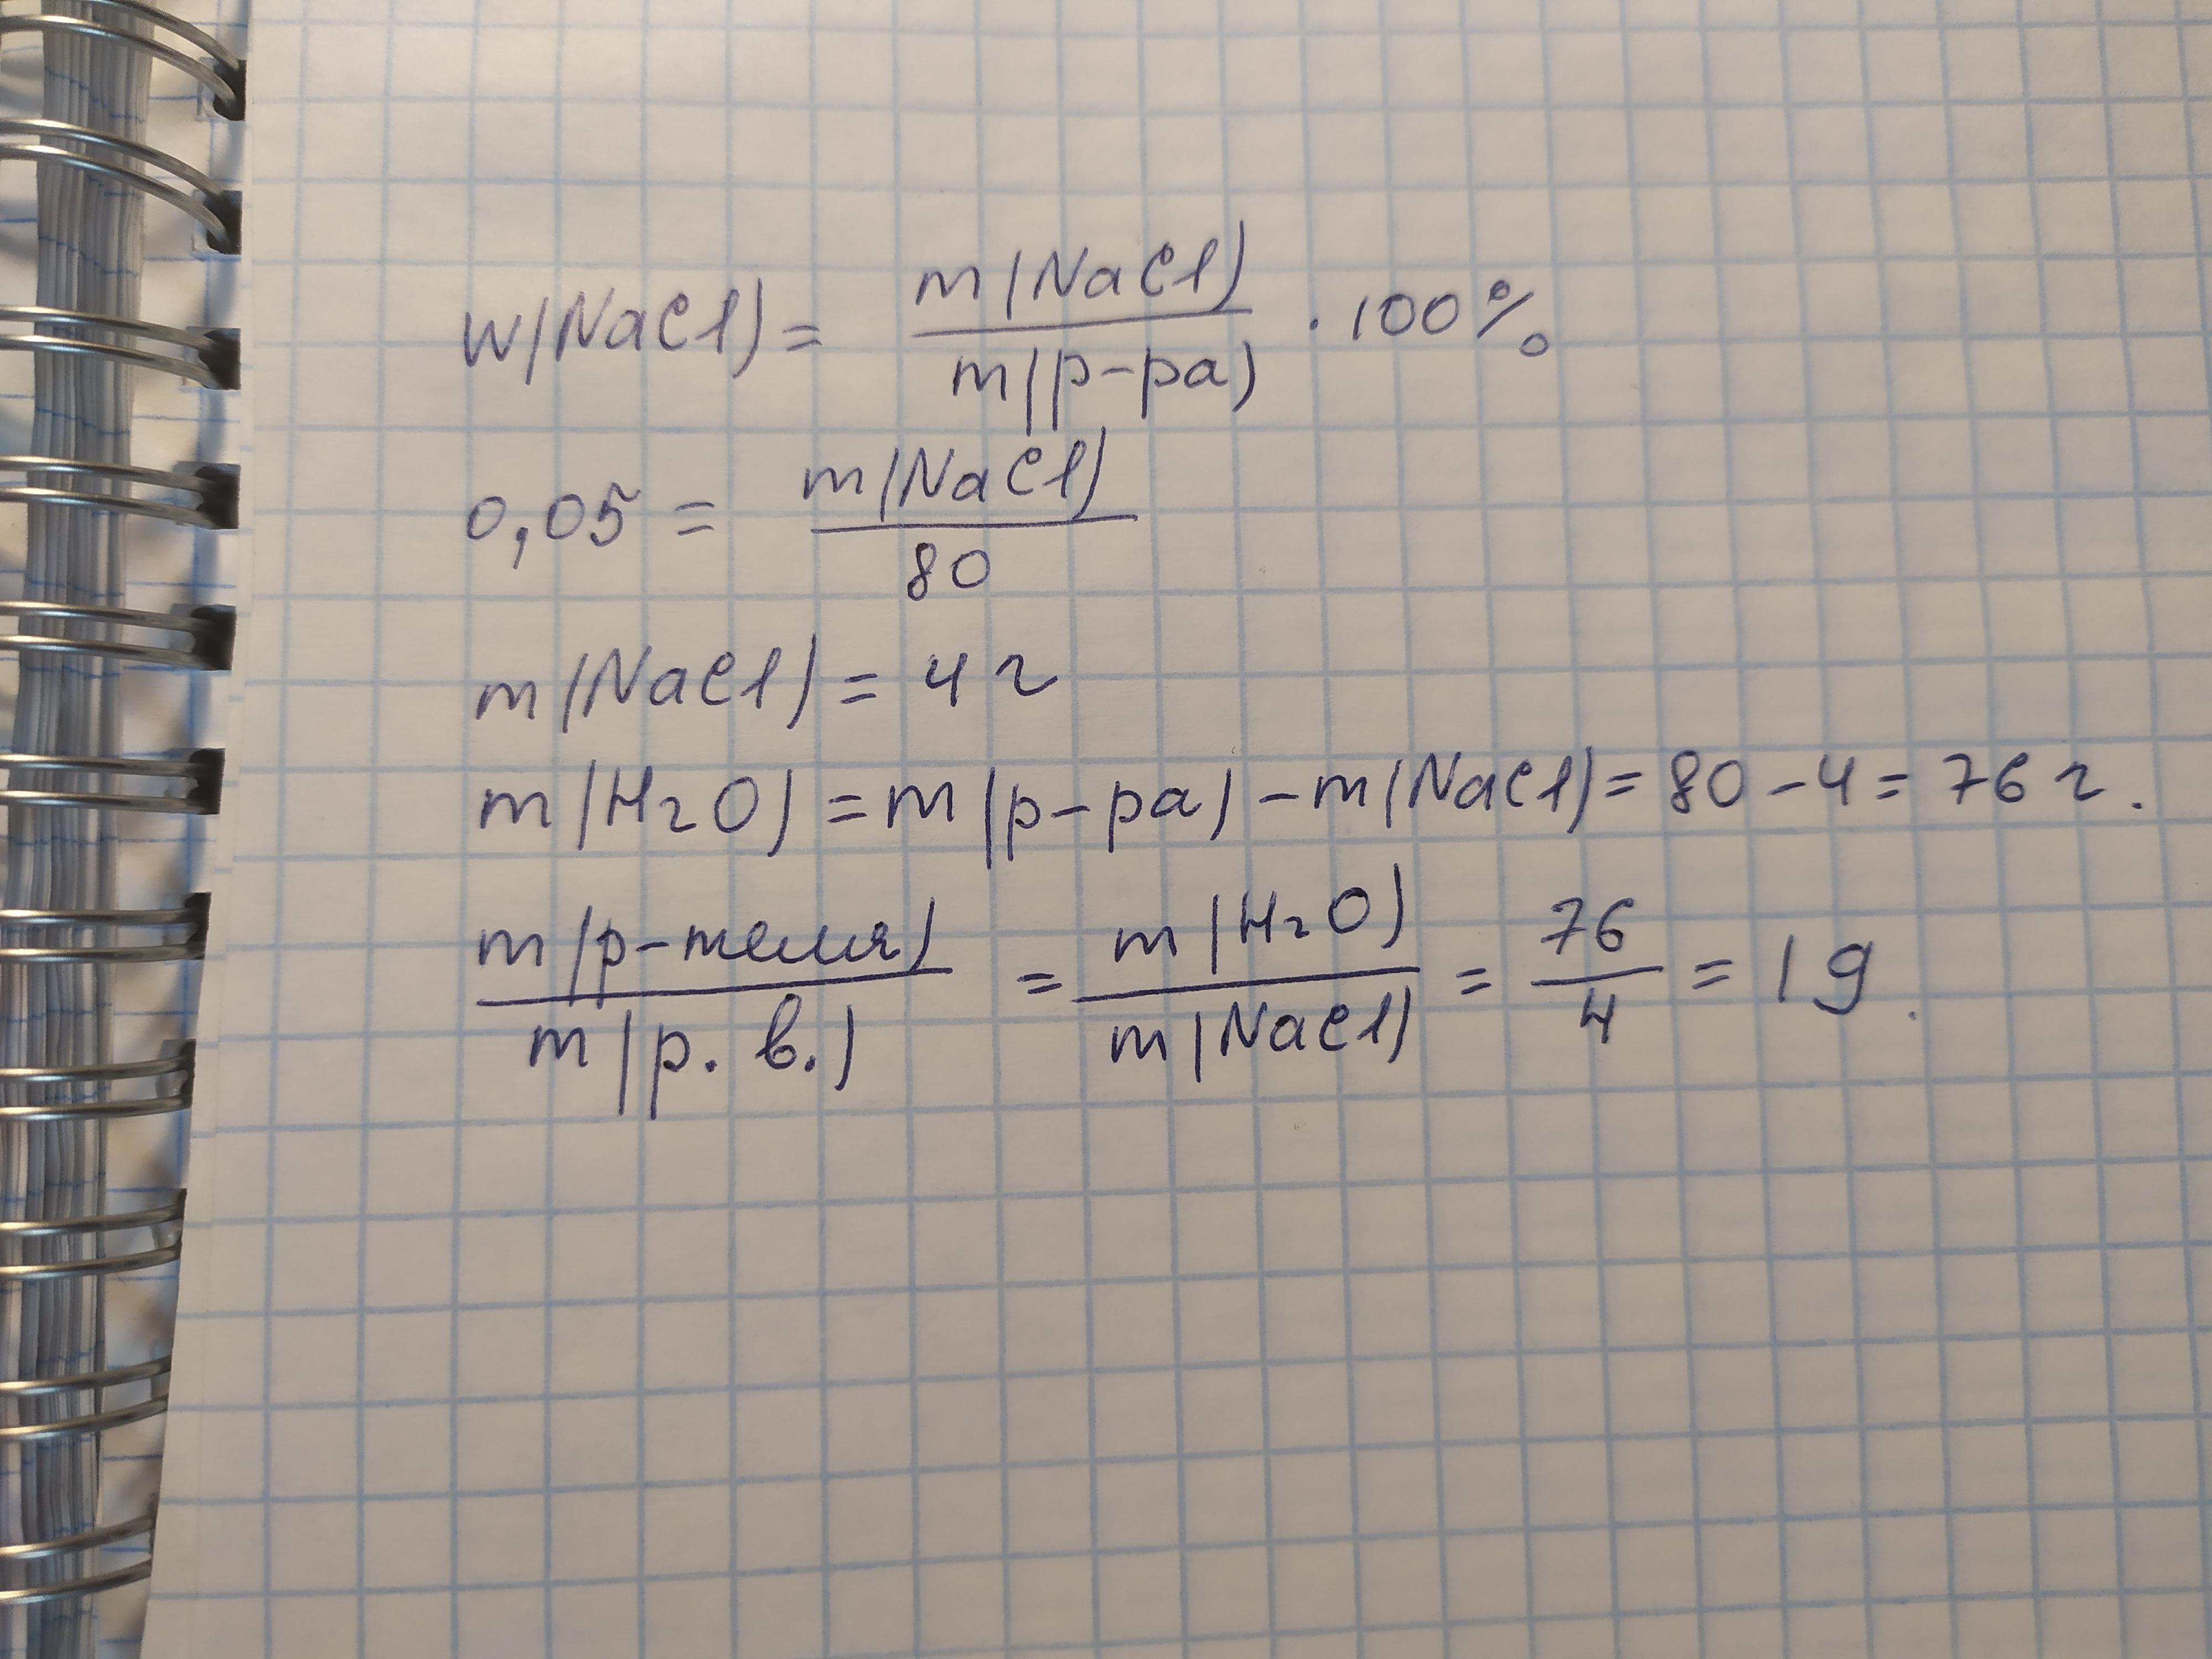 W(NaCl) = m(NaCl) / m(р-ра) · 100%
0,05 = m(NaCl) / 80
m(NaCl) = 4 г
m(H2O) = m(р-ра) - m(NaCl) = 80 - 4 = 76 г.
m(р-теля) / m(р. в.) = m(H2O) / m(NaCl) = 76 / 4 = 19.